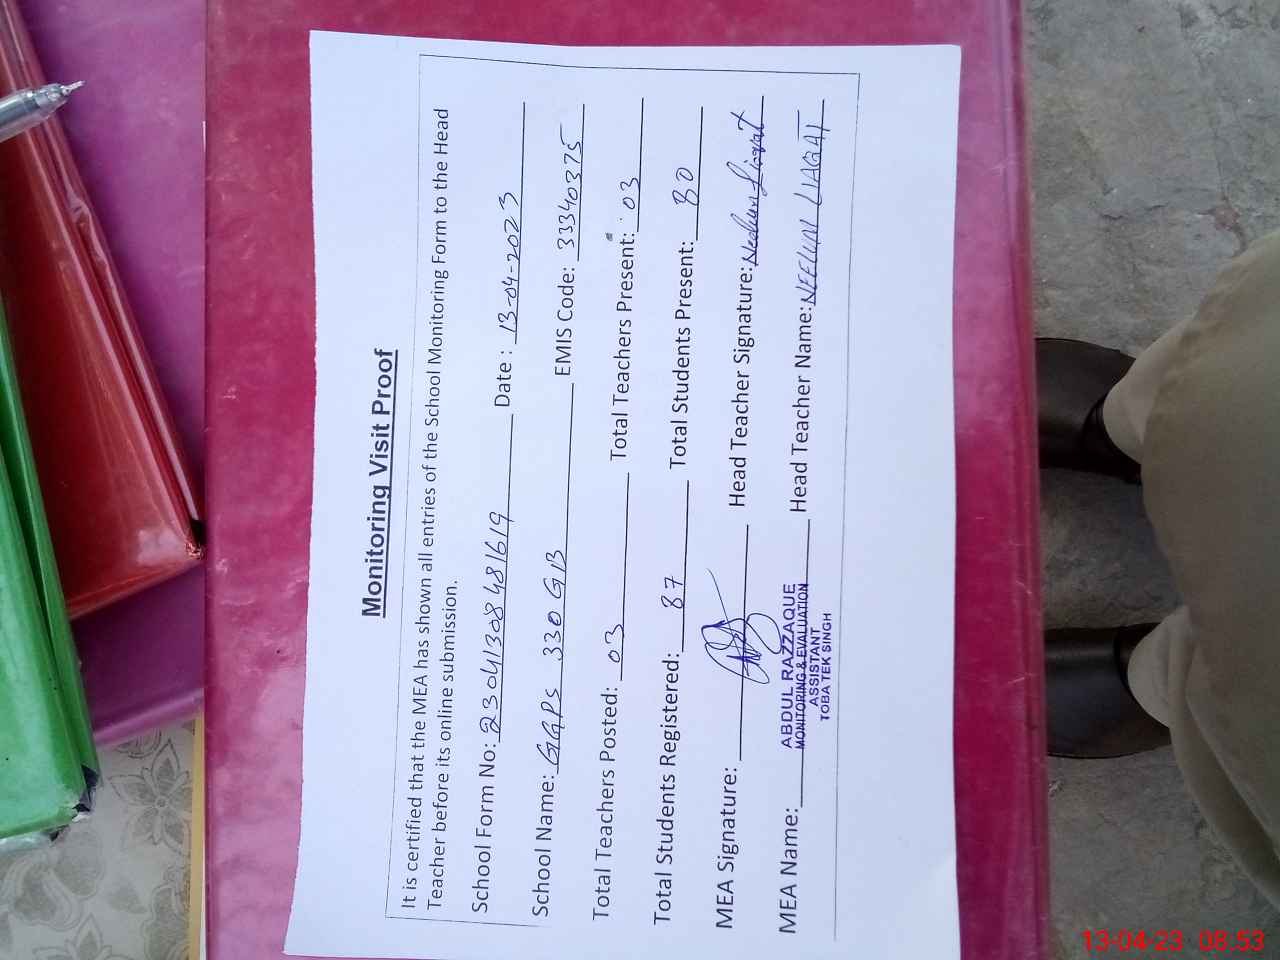 Monitoring Visit Proof
It is certified that the MEA has shown all entries of the School Monitoring Form to the Head
Teacher before its online submission.
School Form No: 23041308481619 Date : 13-04-2023
School Name: GGPS 330 GB EMIS Code: 33340375
Total Teachers Posted: 03 Total Teachers Present: 03
Total Students Registered: 87 Total Students Present: 80
MEA Signature: Head Teacher Signature: Neelum Liaqat
MEA Name: ABDUL RAZZAQUE Head Teacher Name: NEELUM LIAQAT
MONITORING & EVALUATION
ASSISTANT
TOBA TEK SINGH
13-04-23 08:53